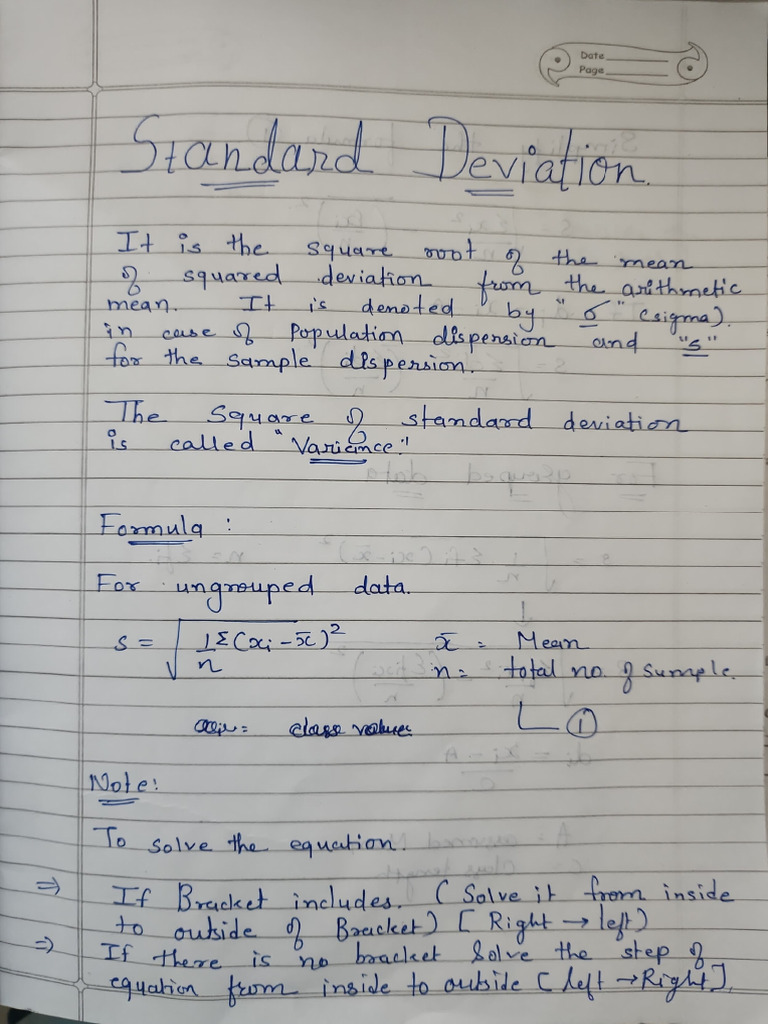 Date
Page
Standard Deviation.
It is the square root of the mean
of squared deviation from the arithmetic
mean. It is denoted by "σ" (sigma).
in case of Population dispersion and "s"
for the sample dispersion.
The Square of standard deviation
is called "Variance."
Formula :
For ungrouped data.
s = √(1/n Σ(xi - x̄)²) x̄ = Mean
n = total no. of sumple.
xi = class values ①
Note:
To solve the equation.
⇒ If Bracket includes. (Solve it from inside
to outside of Bracket) [Right → left)
⇒ If there is no bracket Solve the step of
equation from inside to outside [left → Right].